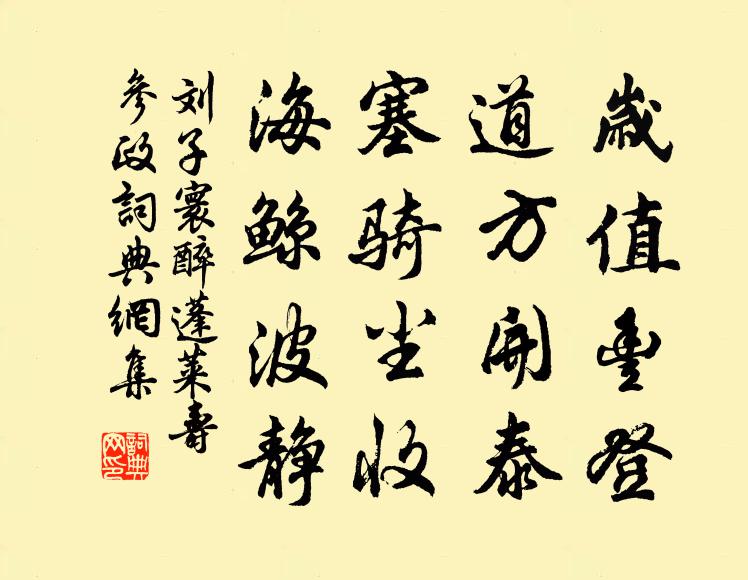 歲值豐登
道方開泰
塞騎尘收
海鲸波静
刘子寰醉蓬莱壽
參政詞典網集
詞典网印